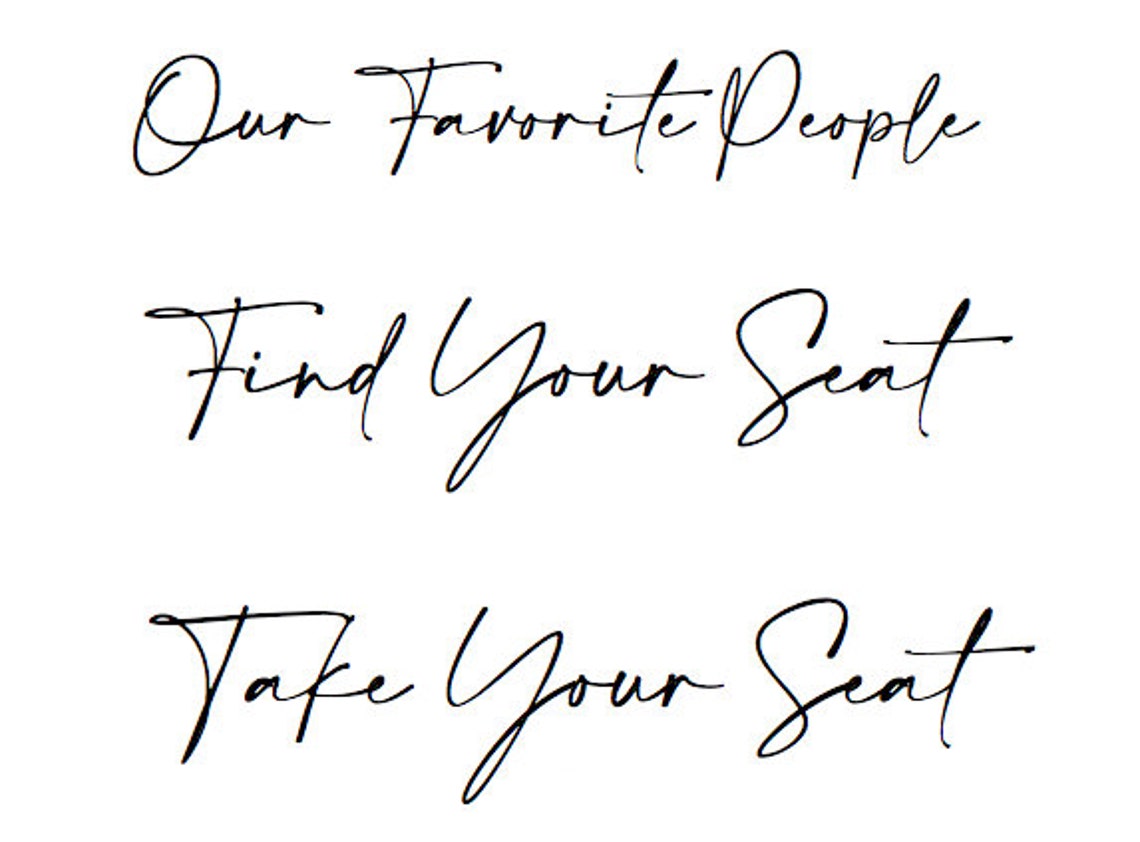 Our Favorite People
Find Your Seat
Take Your Seat